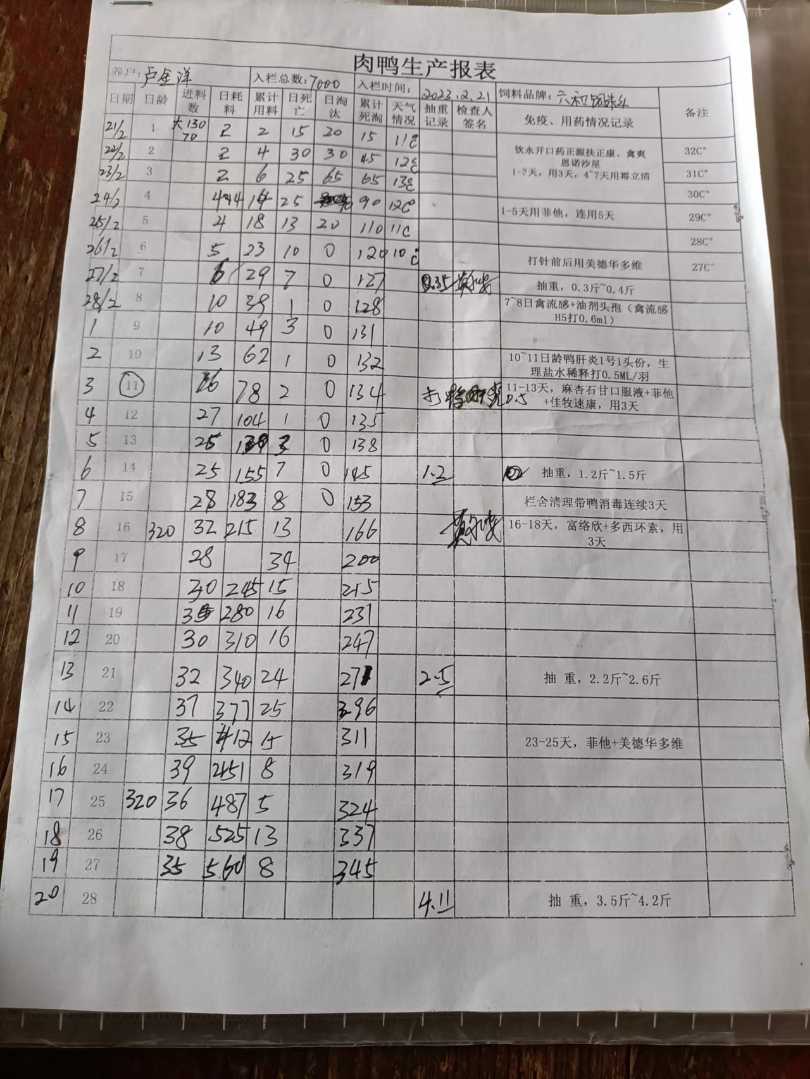 肉鸭生产报表
养户: 卢金洋 入栏总数: 7000 入栏时间: 2023.2.21 饲料品牌:
日期 日龄 进料数 日耗料 累计用料 日死亡 日淘汰 累计死淘 天气情况 抽重记录 检查人签名 免疫、用药情况记录 备注
21/2 1 大130 70 2 2 15 20 15 11℃ 饮水开口药正源扶正康、禽爽 32C°
22/2 2 2 4 30 30 45 12℃ 恩诺沙星
23/2 3 2 6 25 65 65 13℃ 1-?天,用3天,4~7天用霉立清 31C°
24/2 4 4 14 25 90 12℃ 30C°
25/2 5 4 18 13 20 110 11℃ 1-5天用菲他,连用5天 29C°
26/2 6 5 23 10 0 120 10℃ 28C°
27/2 7 6 29 7 0 127 0.35 打针前后用美德华多维 27C°
抽重,0.3斤~0.4斤
28/2 8 10 39 1 0 128 7~8日禽流感+油剂头孢(禽流感
H5打0.6ml)
1 9 10 49 3 0 131
2 10 13 62 1 0 132 10~11日龄鸭肝炎1号1头份,生
理盐水稀释打0.5ML/羽
3 11 16 78 2 0 134 0.5 11-13天,麻杏石甘口服液+菲他
+佳牧速康,用3天
4 12 27 104 1 0 135
5 13 25 3 0 138
6 14 25 155 7 0 145 1.2 抽重,1.2斤~1.5斤
7 15 28 183 8 0 153 栏舍清理带鸭消毒连续3天
8 16 320 32 215 13 166 16-18天,富络欣+多西环素,用
3天
9 17 28 34 200
10 18 30 245 15 215
11 19 35 280 16 231
12 20 30 310 16 247
13 21 32 340 24 271 2.5 抽 重,2.2斤~2.6斤
14 22 37 377 25 296
15 23 35 412 15 311 23-25天,菲他+美德华多维
16 24 39 451 8 319
17 25 320 36 487 5 324
18 26 38 525 13 337
19 27 35 560 8 345
20 28 4.11 抽 重,3.5斤~4.2斤